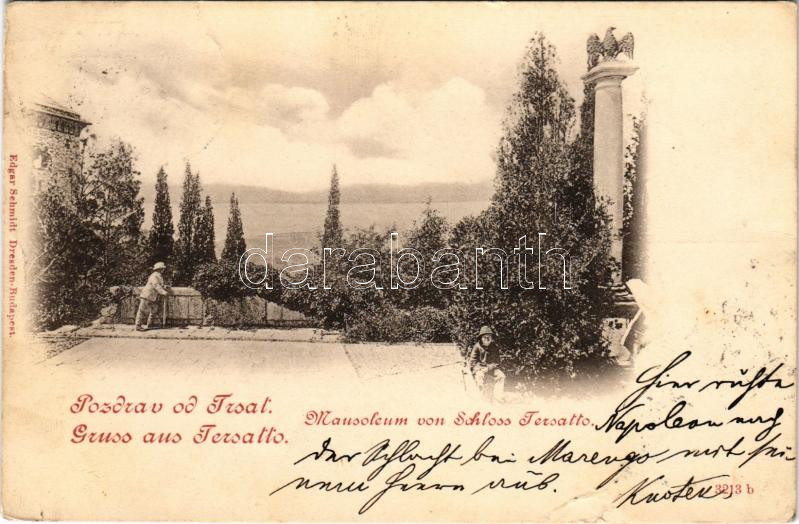 Edgar Schmidt Dresden-Budapest.
darabanth
Pozdrav od Trsat.
Gruss aus Tersatto.
Mausoleum von Schloss Tersatto.
Hier ruhte
Napoleon nach
der Schlacht bei Marengo mit sei-
nem Heere aus.
3213 b